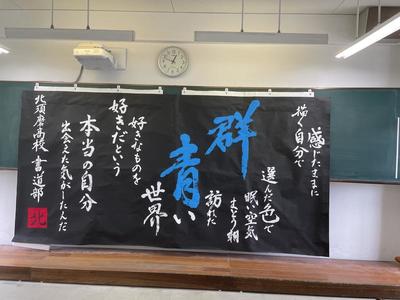 感じたままに
描く自分で
選んだ色で
眠い空気
まとう朝
訪れた
群
青い
世界
好きなものを
好きだという
本当の自分
出会えた気がしたんだ
北須磨高校 書道部
北